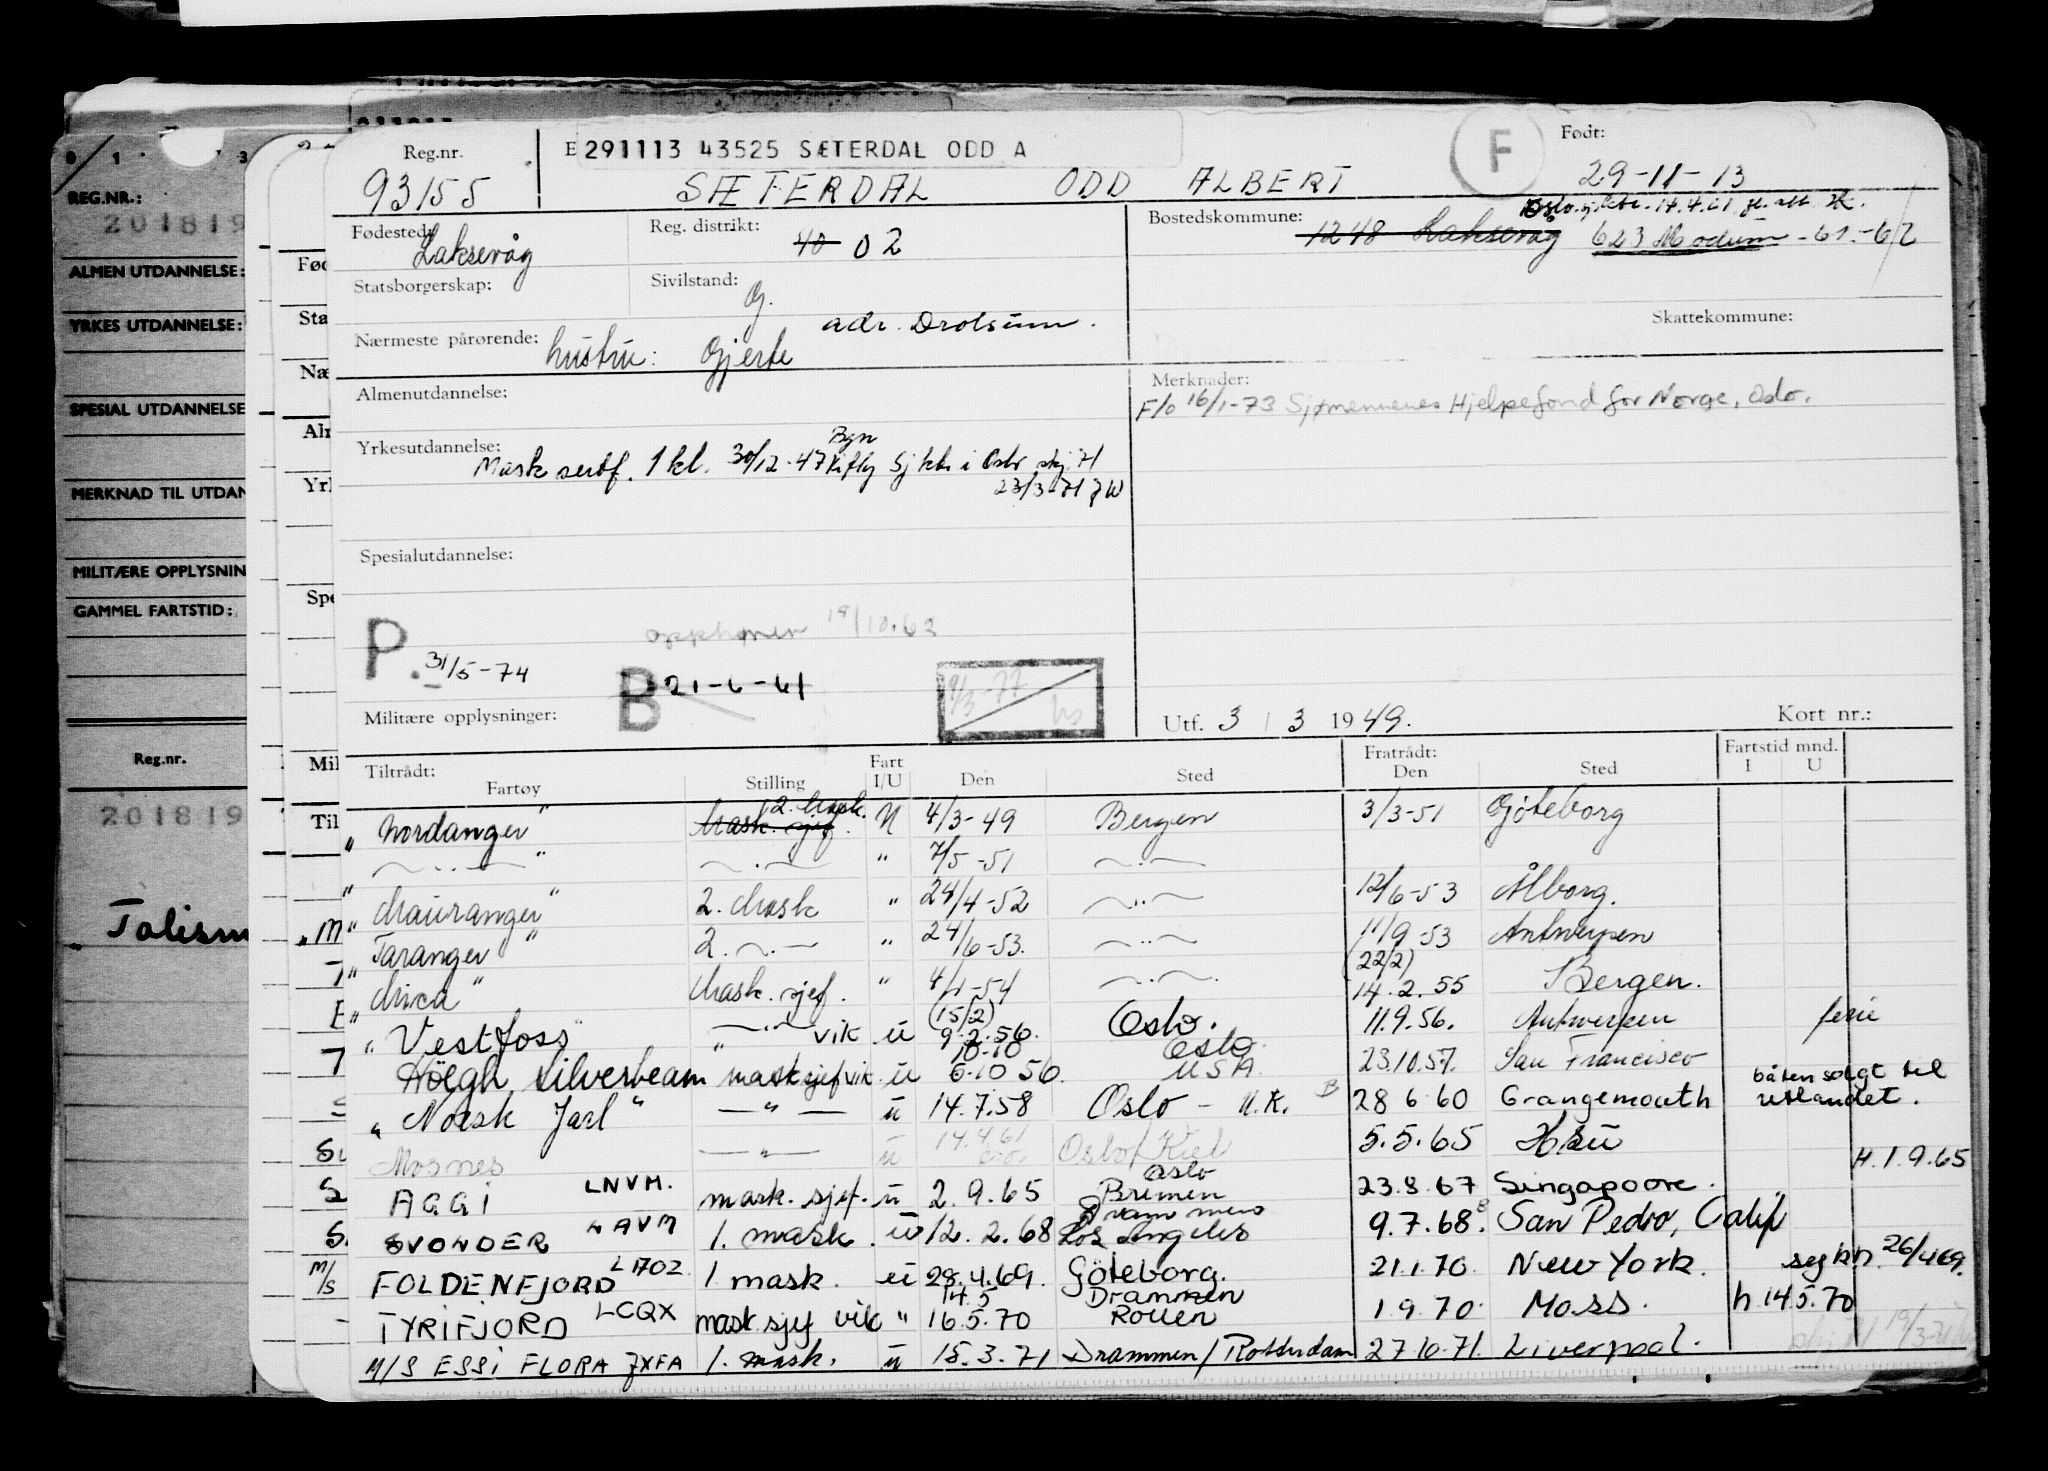 REG.NR.:
201819
ALMEN UTDANNELSE:
YRKES UTDANNELSE:
SPESIAL UTDANNELSE
MERKNAD TIL UTDAN
MILITÆRE OPPLYSNIN
GAMMEL FARTSTID:
Reg.nr.
201819
Reg.nr. E 291113 43525 SÆTERDAL ODD A F Født:
93155 SÆTERDAL ODD ALBERT 29-11-13
Fødested: Laksevåg Reg. distrikt: 40 02 Bostedskommune: 1248 Laksevåg 623 Modum -61-62
Statsborgerskap: Sivilstand: G.
Skattekommune:
adr. Drolsum.
Nærmeste pårørende: hustru: Gjerte
Almenutdannelse: Merknader:
F/o 16/1-73 Sjømennenes Hjelpefond for Norge, Oslo.
Yrkesutdannelse: Bgn
Mask sertf. 1 kl. 30/12-47 Sj ktr i Oslo skj. 71
23/3-71
Spesialutdannelse:
18/10.62
P. 31/5-74
B 21-6-61
9/3-77
Militære opplysninger: Utf. 3 / 3 1949. Kort nr.:
Tiltrådt: Fart Fratrådt: Fartstid mnd.
Fartøy Stilling I/U Den Sted Den Sted I U
"Nordanger" Mask. sjef. 2. Mask. U 4/3-49 Bergen 3/3-51 Göteborg
" —..— " —.— " 7/5-51 —.—
"Mauranger" 2. Mask " 24/4-52 —..— 12/6-53 Ålborg.
"Taranger" 2. —.— " 24/6-53. —.— 11/9-53 Antwerpen
"Mica" Mask. sjef. " 4/1-54 —..— (22/2) 14.2.55 Bergen.
"Vestfoss" —..— vik ü (15/2) 9.2.56. Oslo. 11.9.56. Antwerpen ferie
Höegh Silverbeam " masksjef vik. ü 10-10 6-10 56. Oslo. USA. 23.10.57. San Francisco
"Norsk Jarl" — " — ü 14.7.58 Oslo - U.K. B 28 6 60 Grangemouth båten solgt til utlandet.
Mosnes — " — ü 14.4.61 Oslo/Kiel 5.5.65
H.1.9.65
AGGI LNVM. mask. sjef. ü 2.9.65 Oslo Bremen 23.8.67 Singapoore.
SVONDER LAVM 1. mask. ü 12.2.68 Drammen Los Angeles 9.7.68. San Pedro, Calif
M/S FOLDENFJORD LIOZ 1 mask. ü 28.4.69. Göteborg. 21.1.70. New York. 26/4 69.
TYRIFJORD LCQX mask sjef vik " 14.5 16.5.70 Drammen Rouen 1.9.70. Moss. h. 14.5.70
M/S ESSI FLORA JXFA 1. mask. ü 15.3.71 Drammen/Rotterdam 27.10.71. Liverpool.